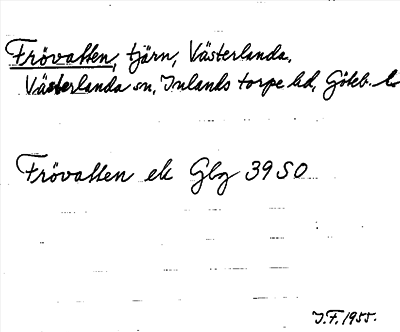 Frövatten, tjärn, Västerlanda.
Västerlanda sn, Inlands torpe hd, Göteb. l.
Frövatten ek Gbg 39 SO
J.F. 1955.